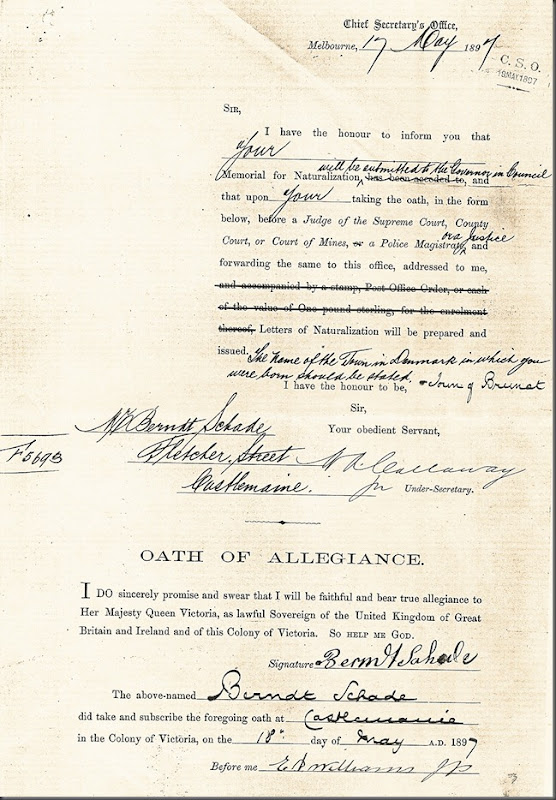 Chief Secretary's Office,
Melbourne, 17 May 1897
C. S. O.
19 MAY 1897
SIR,
I have the honour to inform you that
Your
will be submitted to the Governor in Council
Memorial for Naturalization, has been acceded to, and
that upon your taking the oath, in the form
below, before a Judge of the Supreme Court, County
or a Justice
Court, or Court of Mines, or a Police Magistrate, and
forwarding the same to this office, addressed to me,
and accompanied by a stamp, Post Office Order, or cash
of the value of One pound sterling, for the enrolment
thereof, Letters of Naturalization will be prepared and
issued. The name of the Town in Denmark in which you
were born should be stated. Town of
I have the honour to be,
Sir,
Mr Berndt Schade
Your obedient Servant,
F5693
Fletcher Street
Castlemaine.
Under-Secretary.
OATH OF ALLEGIANCE.
I DO sincerely promise and swear that I will be faithful and bear true allegiance to
Her Majesty Queen Victoria, as lawful Sovereign of the United Kingdom of Great
Britain and Ireland and of this Colony of Victoria. SO HELP ME GOD.
Signature Bernd Schade
The above-named Berndt Schade
did take and subscribe the foregoing oath at Castlemaine
in the Colony of Victoria, on the 18th day of May A.D. 1897
Before me Williams JP